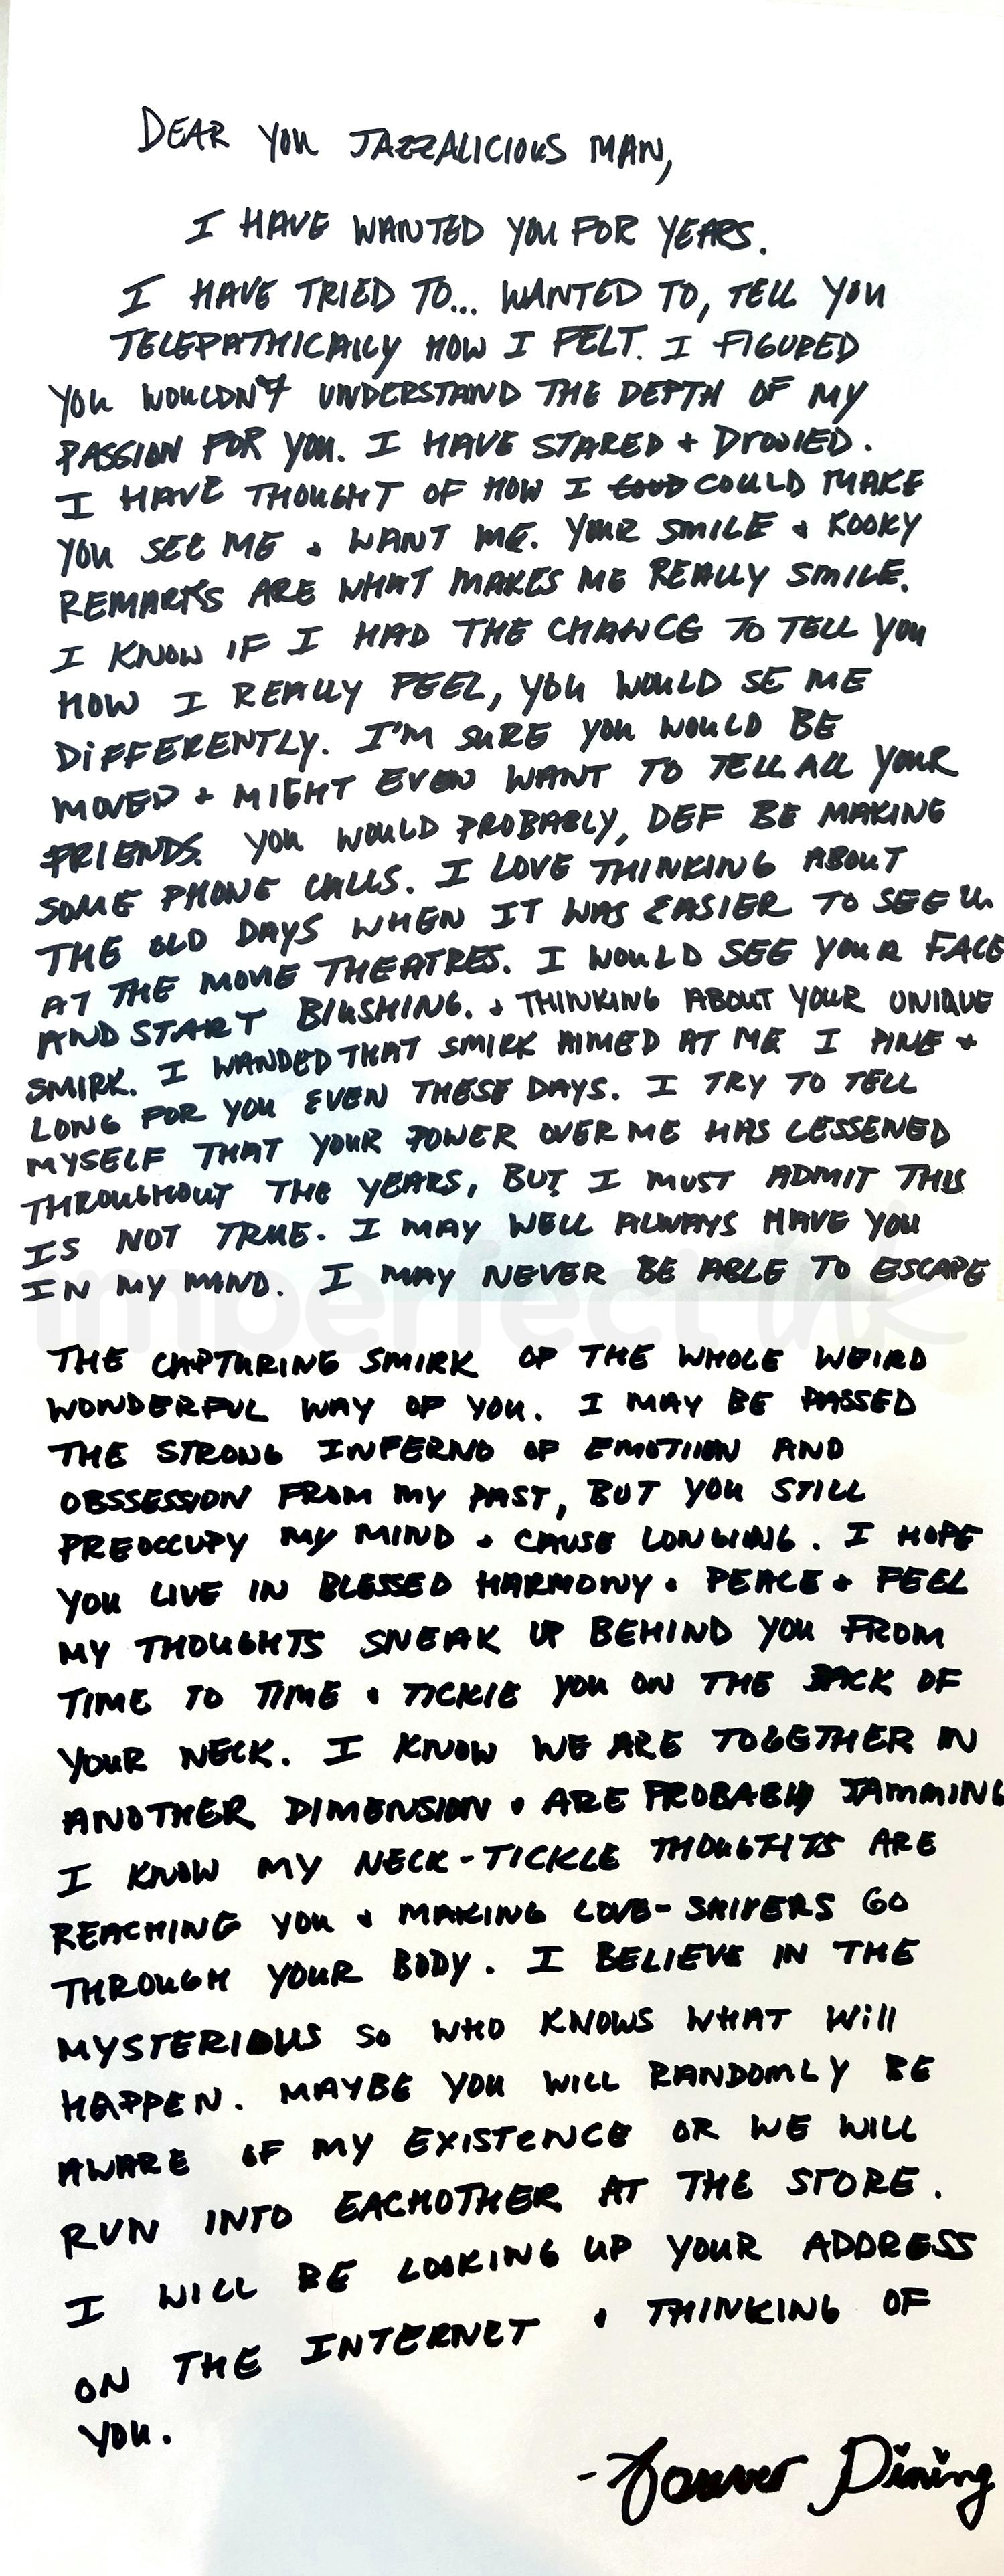 DEAR YOU JAZZALICIOUS MAN,
I HAVE WANTED YOU FOR YEARS.
I HAVE TRIED TO... WANTED TO, TELL YOU
TELEPATHICALLY HOW I FELT. I FIGURED
YOU WOULDN'T UNDERSTAND THE DEPTH OF MY
PASSION FOR YOU. I HAVE STARED + DROOLED.
I HAVE THOUGHT OF HOW I COULD MAKE
YOU SEE ME + WANT ME. YOUR SMILE + KOOKY
REMARKS ARE WHAT MAKES ME REALLY SMILE.
I KNOW IF I HAD THE CHANCE TO TELL YOU
HOW I REALLY FEEL, YOU WOULD SE ME
DIFFERENTLY. I'M SURE YOU WOULD BE
MOVED + MIGHT EVEN WANT TO TELL ALL YOUR
FRIENDS. YOU WOULD PROBABLY, DEF BE MAKING
SOME PHONE CALLS. I LOVE THINKING ABOUT
THE OLD DAYS WHEN IT WAS EASIER TO SEE U.
AT THE MOVIE THEATRES. I WOULD SEE YOUR FACE
AND START BLUSHING. + THINKING ABOUT YOUR UNIQUE
SMIRK. I WANDED THAT SMIRK AIMED AT ME I PINE +
LONG FOR YOU EVEN THESE DAYS. I TRY TO TELL
MYSELF THAT YOUR POWER OVER ME HAS LESSENED
THROUGHOUT THE YEARS, BUT I MUST ADMIT THIS
IS NOT TRUE. I MAY WELL ALWAYS HAVE YOU
IN MY MIND. I MAY NEVER BE ABLE TO ESCAPE
imperfect ink
THE CAPTURING SMIRK OF THE WHOLE WEIRD
WONDERFUL WAY OF YOU. I MAY BE PASSED
THE STRONG INFERNO OF EMOTIION AND
OBSSESSION FROM MY PAST, BUT YOU STILL
PREOCCUPY MY MIND + CAUSE LONGING. I HOPE
YOU LIVE IN BLESSED HARMONY + PEACE + FEEL
MY THOUGHTS SNEAK UP BEHIND YOU FROM
TIME TO TIME + TICKLE YOU ON THE BACK OF
YOUR NECK. I KNOW WE ARE TOGETHER IN
ANOTHER DIMENSION + ARE PROBABLY JAMMING
I KNOW MY NECK-TICKLE THOUGHTS ARE
REACHING YOU + MAKING LOVE-SHIVERS GO
THROUGH YOUR BODY. I BELIEVE IN THE
MYSTERIOUS SO WHO KNOWS WHAT WILL
HAPPEN. MAYBE YOU WILL RANDOMLY BE
AWARE OF MY EXISTENCE OR WE WILL
RUN INTO EACHOTHER AT THE STORE.
I WILL BE LOOKING UP YOUR ADDRESS
ON THE INTERNET + THINKING OF
YOU.
- Dining